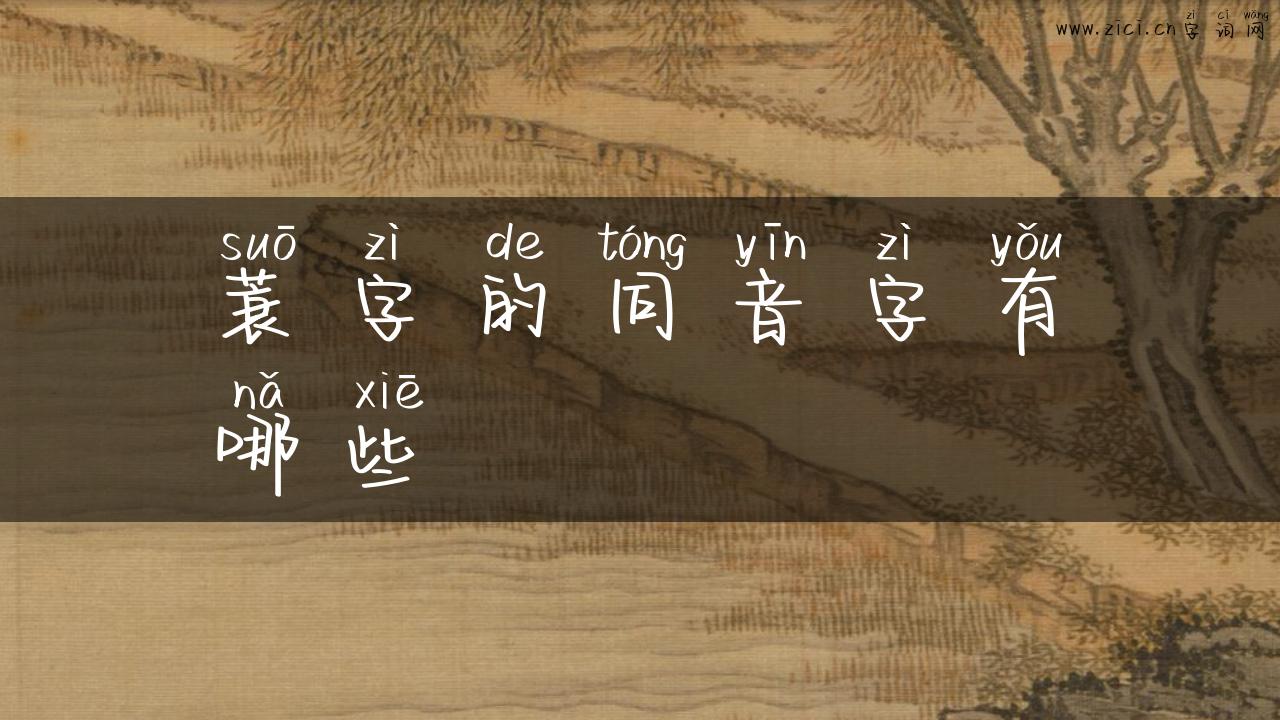 zì cí wǎng
www.zici.cn字词网
suō zì de tóng yīn zì yǒu
蓑字的同音字有
nǎ xiē
哪些